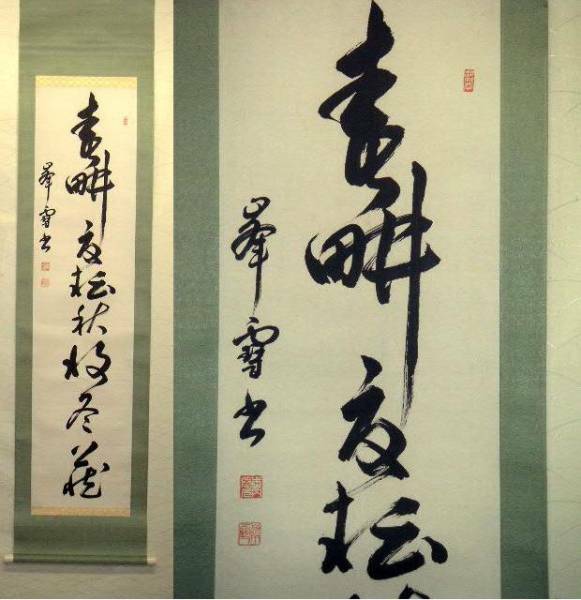 春畊夏耘秋收冬藏
峯雪書
春畊夏耘
峯雪書